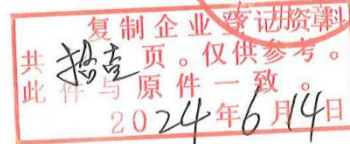 复制企业登记资料
共拾壹页。仅供参考。
此件与原件一致。
2024年6月14日